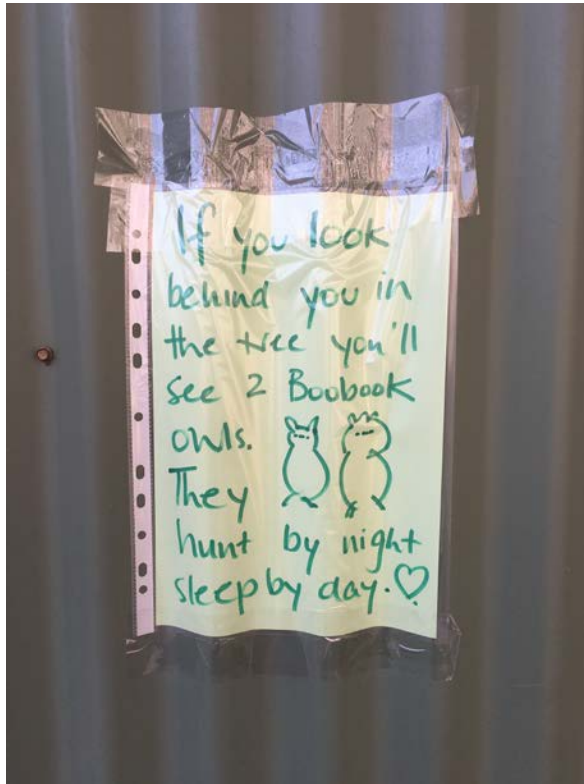 If you look
behind you in
the tree you'll
see 2 Boobook
owls.
They
hunt by night
sleep by day.♡